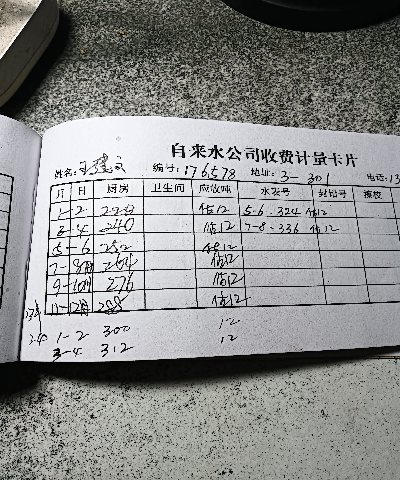 自来水公司收费计量卡片
姓名: 王建文 编号: 176578 地址: 3-301 电话: 13
月 日 厨房 卫生间 应收吨 水表号 封铅号 核
1-2 估12 5-6-324 估12
3-4 240 估12 7-8-336 估12
5-6 252 估12
7-8月 264 估12
9-10月 276 估12
11-12月 288 估12
24 1-2 300 12
3-4 312 12